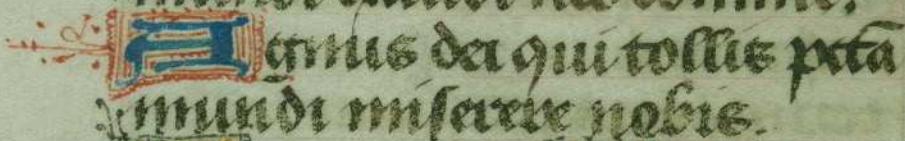 Agnus dei qui tollis pctā
mundi miserere nobis.